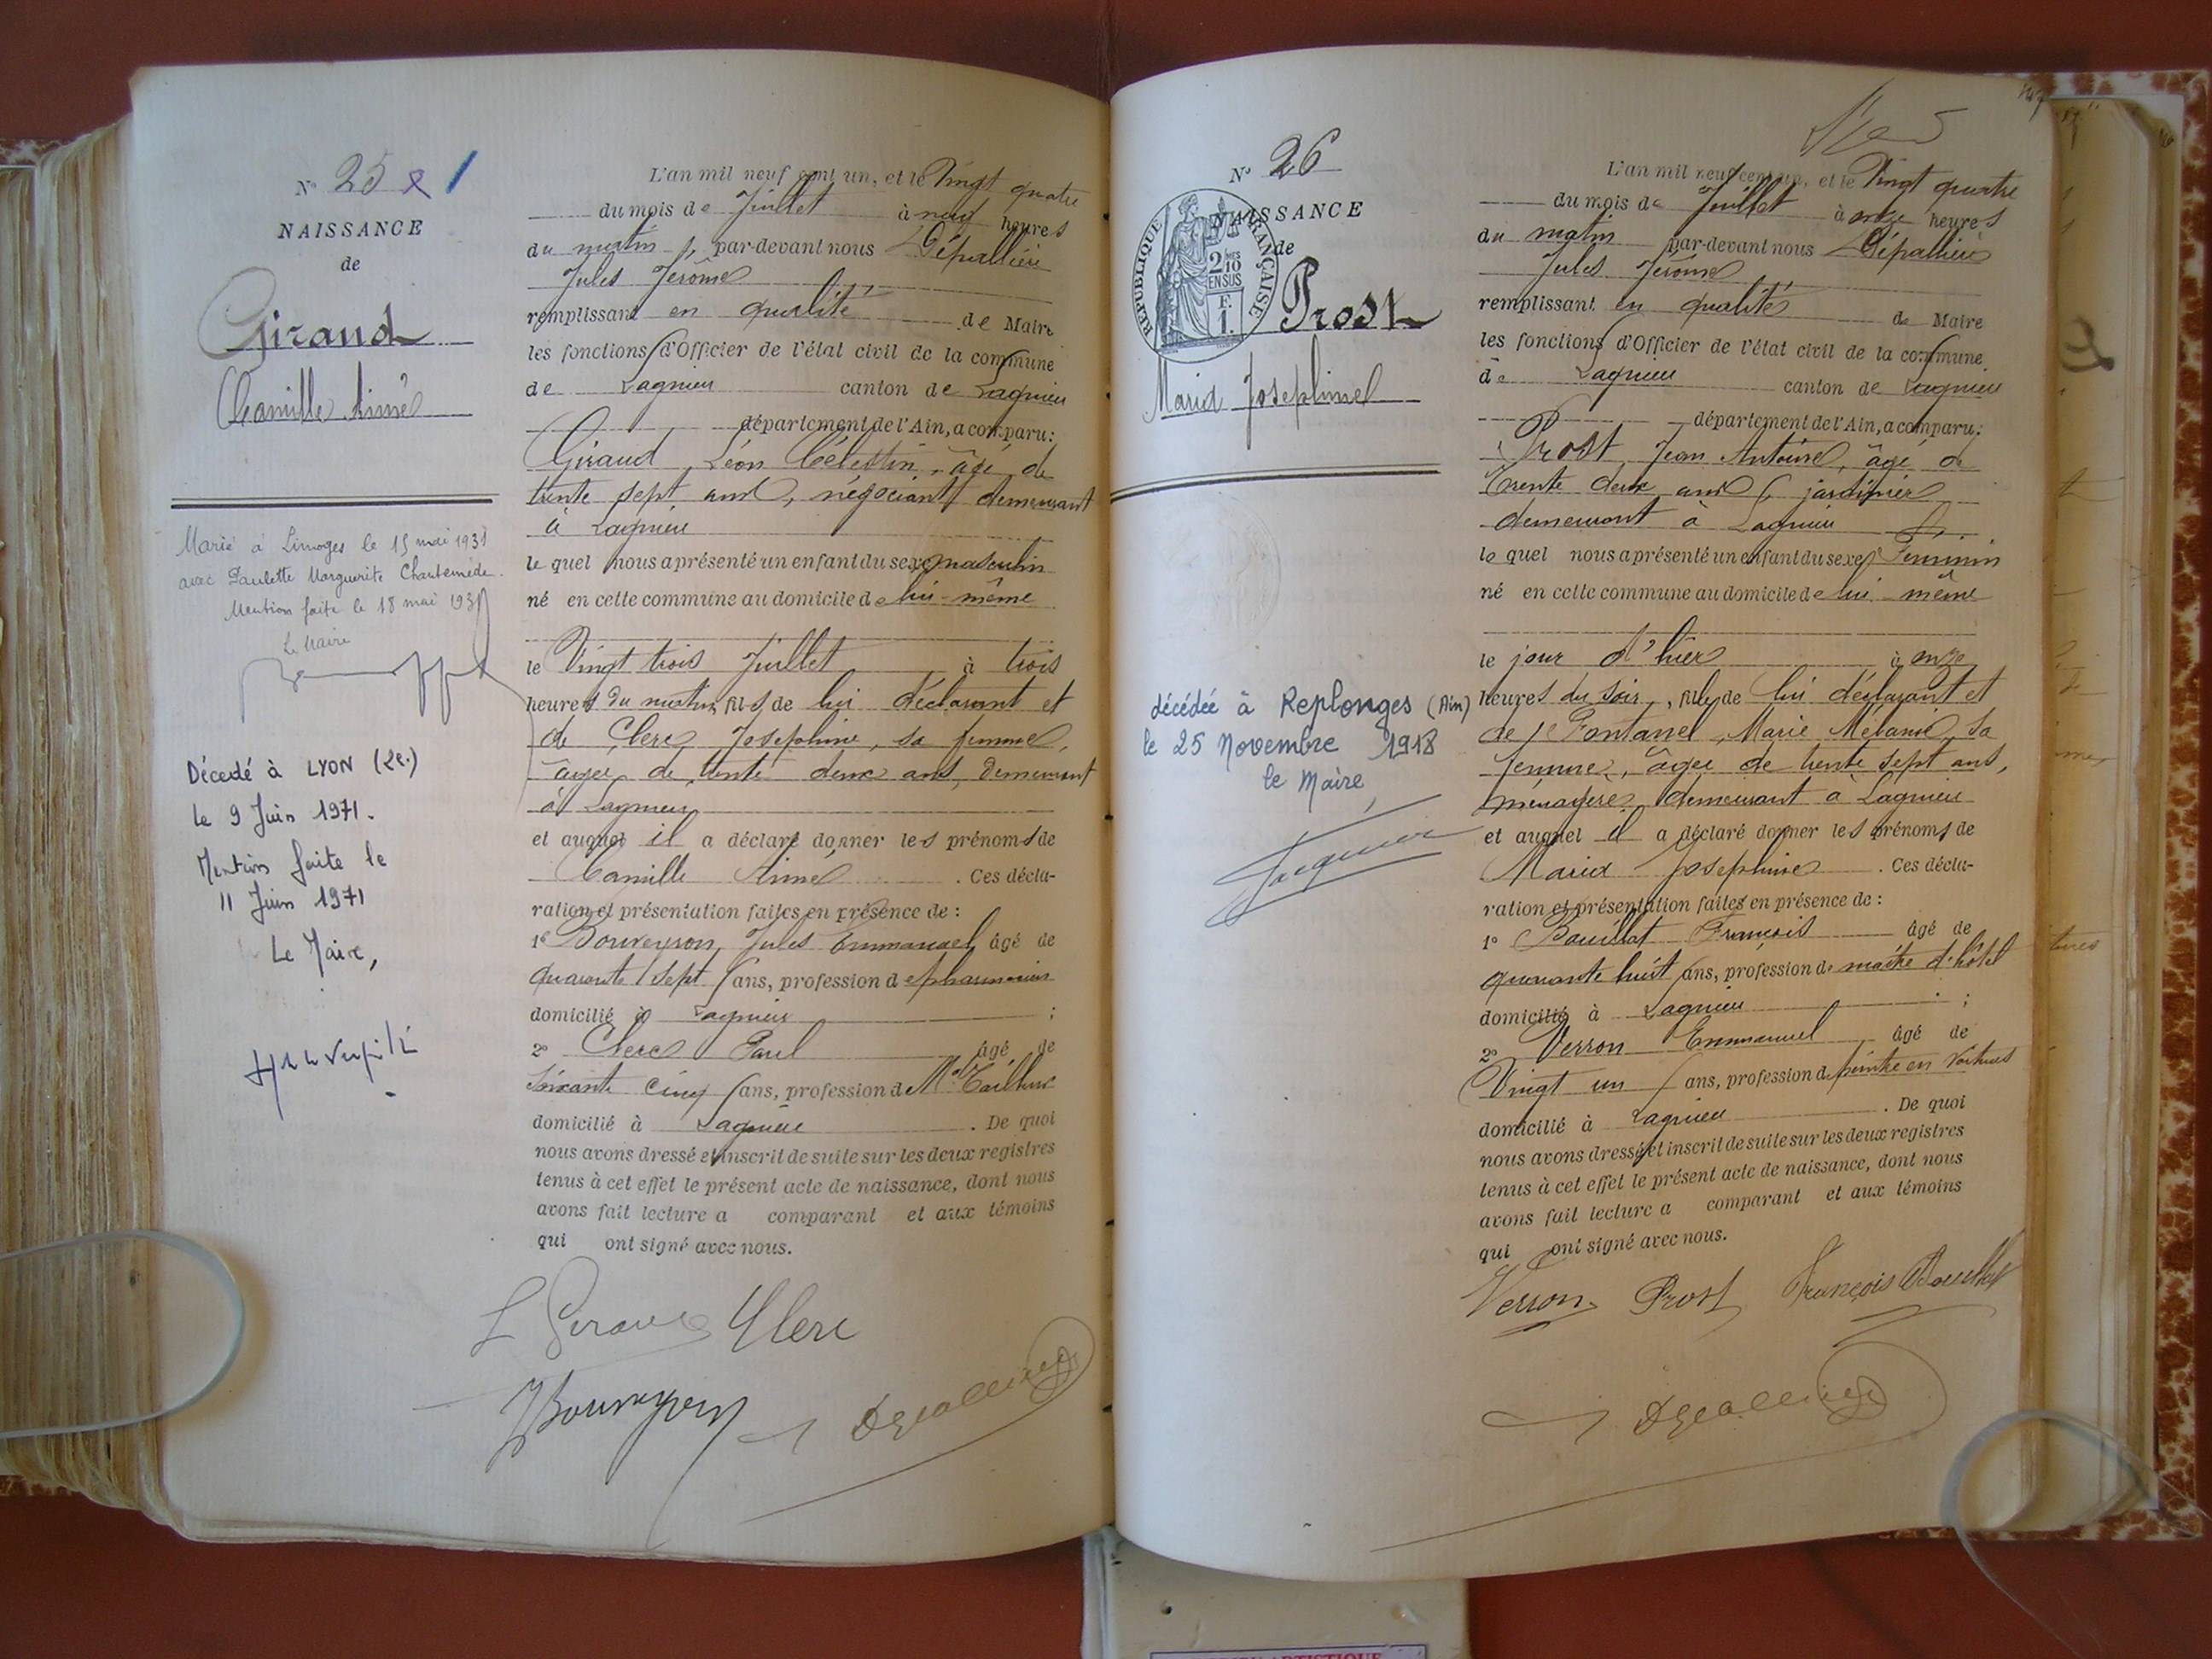 N° 25
NAISSANCE
de
Giraud
Camille Aimé
Marié à Limoges le 15 mai 1931
avec Paulette Marguerite Chantemède.
Mention faite le 18 mai 1931
Le Maire
Décédé à LYON (2e.)
le 9 Juin 1971.
Mention faite le
11 Juin 1971
Le Maire,
L'an mil neuf cent un, et le Vingt quatre
du mois de Juillet à neuf heures
du matin, par-devant nous Dépallière
Jules Jérôme
remplissant en qualité de Maire
les fonctions d'Officier de l'état civil de la commune
de Lagnieu canton de Lagnieu
département de l'Ain, a comparu:
Giraud, Léon Célestin, âgé de
trente sept ans, négociant demeurant
à Lagnieu
le quel nous a présenté un enfant du sexe masculin
né en cette commune au domicile de lui-même
le Vingt trois Juillet à trois
heures du matin, fils de lui déclarant et
de Clerc Joséphine, sa femme,
âgée de trente deux ans, demeurant
à Lagnieu
et auquel il a déclaré donner les prénoms de
Camille Aimé. Ces décla-
ration et présentation faites en présence de :
1° Bouveyron, Jules Emmanuel âgé de
quarante sept ans, profession de pharmacien
domicilié à Lagnieu ;
2° Clerc Paul âgé de
soixante cinq ans, profession de Md Tailleur
domicilié à Lagnieu. De quoi
nous avons dressé et inscrit de suite sur les deux registres
tenus à cet effet le présent acte de naissance, dont nous
avons fait lecture a comparant et aux témoins
qui ont signé avec nous.
L Giraud Clerc
J Bouveyron
N° 26
NAISSANCE
de
RÉPUBLIQUE FRANÇAISE
2/10 EN SUS
F. 1.
Prost
Marie Josephine
décédée à Replonges (Ain)
le 25 Novembre 1918
le Maire,
L'an mil neuf cent un, et le Vingt quatre
du mois de Juillet à onze heures
du matin par-devant nous Dépallière
Jules Jérôme
remplissant en qualité de Maire
les fonctions d'Officier de l'état civil de la commune
de Lagnieu canton de Lagnieu
département de l'Ain, a comparu:
Prost Jean Antoine, âgé de
Trente deux ans, jardinier
demeurant à Lagnieu
le quel nous a présenté un enfant du sexe Féminin
né en cette commune au domicile de lui-même
le jour d'hier à onze
heures du soir, fille de lui déclarant et
de Fontanel, Marie Mélanie, sa
femme, âgée de trente sept ans,
ménagère, demeurant à Lagnieu
et auquel il a déclaré donner les prénoms de
Marie Josephine. Ces décla-
ration et présentation faites en présence de :
1° Bouillat François âgé de
quarante huit ans, profession de maître d'hôtel
domicilié à Lagnieu ;
2° Verron Emmanuel âgé de
Vingt un ans, profession de peintre en voitures
domicilié à Lagnieu. De quoi
nous avons dressé et inscrit de suite sur les deux registres
tenus à cet effet le présent acte de naissance, dont nous
avons fait lecture a comparant et aux témoins
qui ont signé avec nous.
Verron Prost François Bouillat